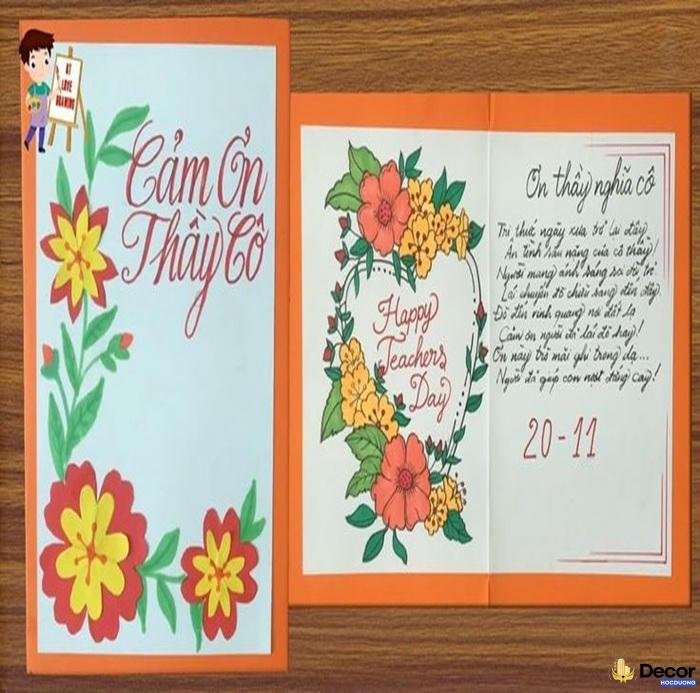 KT
LOVE
DRAWING
Cảm Ơn
Thầy Cô
Happy
Teachers
Day
Ơn thầy nghĩa cô
Tri thức ngày xưa trở lại đây
Ân tình sâu nặng của cô thầy!
Người mang ánh sáng soi đời trẻ
Lái chuyến đò chiều sang đến đây
Đò đến vinh quang nơi đất lạ
Cảm ơn người đã lái đò hay!
Ơn này trò mãi ghi trong dạ...
Người đã giúp con vượt đắng cay!
20-11
Decor
HOCDUONG